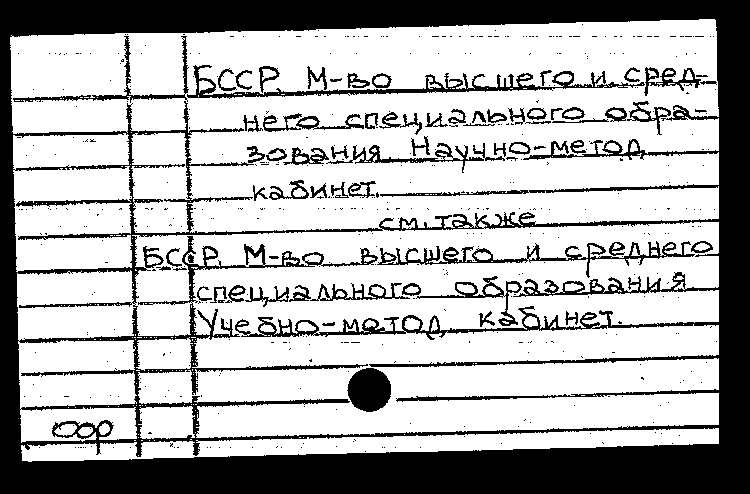 БССР. М-во высшего и сред-
него специального обра-
зования. Научно-метод.
кабинет.
см. также
БССР. М-во высшего и среднего
специального образования
Учебно-метод. кабинет.